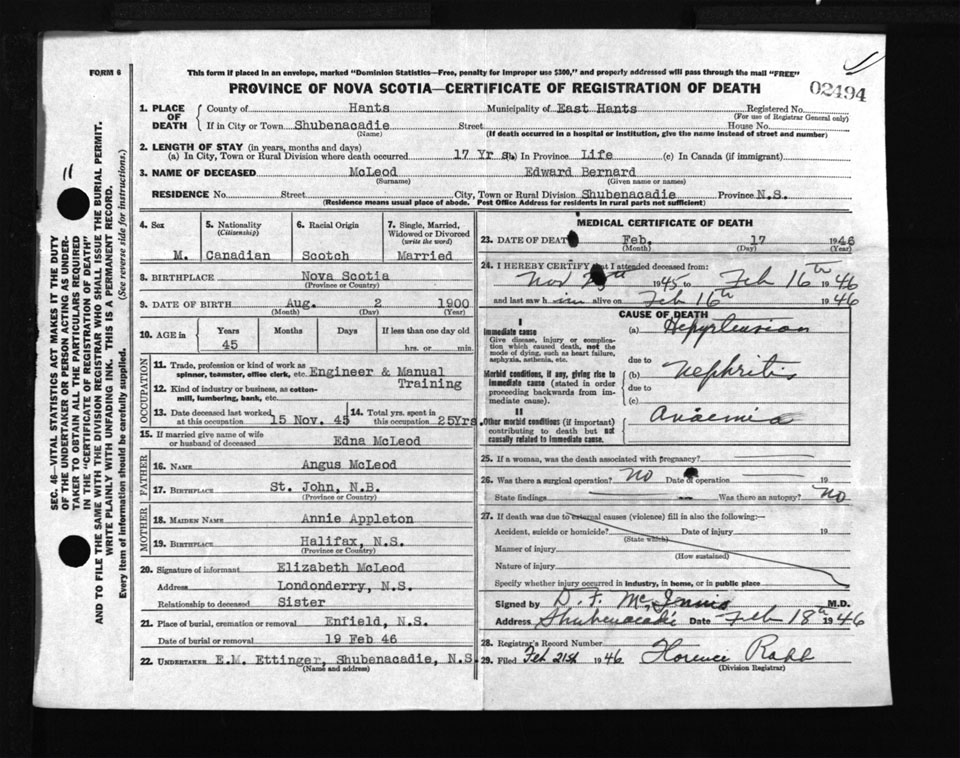 FORM 6
This form if placed in an envelope, marked "Dominion Statistics—Free, penalty for improper use $300," and properly addressed will pass through the mail "FREE"
PROVINCE OF NOVA SCOTIA—CERTIFICATE OF REGISTRATION OF DEATH
02494
1. PLACE OF DEATH
County of Hants Municipality of East Hants Registered No.
(For use of Registrar General only)
If in City or Town Shubenacadie Street House No.
(Name) (If death occurred in a hospital or institution, give the name instead of street and number)
2. LENGTH OF STAY (in years, months and days)
(a) In City, Town or Rural Division where death occurred 17 Yrs (b) In Province Life (c) In Canada (if immigrant)
3. NAME OF DECEASED McLeod Edward Bernard
(Surname) (Given name or names)
RESIDENCE No. Street City, Town or Rural Division Shubenacadie Province N.S.
(Residence means usual place of abode. Post Office Address for residents in rural parts not sufficient)
11
SEC. 46—VITAL STATISTICS ACT MAKES IT THE DUTY
OF THE UNDERTAKER OR PERSON ACTING AS UNDER-
TAKER TO OBTAIN ALL THE PARTICULARS REQUIRED
IN THE "CERTIFICATE OF REGISTRATION OF DEATH"
AND TO FILE THE SAME WITH THE DIVISION REGISTRAR WHO SHALL ISSUE THE BURIAL PERMIT.
WRITE PLAINLY WITH UNFADING INK. THIS IS A PERMANENT RECORD.
Every item of information should be carefully supplied. (See reverse side for instructions.)
4. Sex
M.
5. Nationality
(Citizenship)
Canadian
6. Racial Origin
Scotch
7. Single, Married,
Widowed or Divorced
(write the word)
Married
8. BIRTHPLACE Nova Scotia
(Province or Country)
9. DATE OF BIRTH Aug. 2 1900
(Month) (Day) (Year)
10. AGE in Years Months Days If less than one day old
45 hrs. or min.
OCCUPATION
11. Trade, profession or kind of work as
spinner, teamster, office clerk, etc. Engineer & Manual
Training
12. Kind of industry or business, as cotton-
mill, lumbering, bank, etc.
13. Date deceased last worked
at this occupation 15 Nov. 45
14. Total yrs. spent in
this occupation 25Yrs.
15. If married give name of wife
or husband of deceased Edna McLeod
FATHER
16. NAME Angus McLeod
17. BIRTHPLACE St. John, N.B.
(Province or Country)
MOTHER
18. MAIDEN NAME Annie Appleton
19. BIRTHPLACE Halifax, N.S.
(Province or Country)
20. Signature of informant Elizabeth McLeod
Address Londonderry, N.S.
Relationship to deceased Sister
21. Place of burial, cremation or removal Enfield, N.S.
Date of burial or removal 19 Feb 46
22. UNDERTAKER E.M. Ettinger, Shubenacadie, N.S.
(Name and address)
MEDICAL CERTIFICATE OF DEATH
23. DATE OF DEATH Feb. 17 1946
(Month) (Day) (Year)
24. I HEREBY CERTIFY that I attended deceased from:
Nov 1945 to Feb 16th 1946
and last saw him alive on Feb 16th 1946
CAUSE OF DEATH
I
Immediate cause
Give disease, injury or complica-
tion which caused death, not the
mode of dying, such as heart failure,
asphyxia, asthenia, etc.
(a) Hepyrtension
due to
Morbid conditions, if any, giving rise to
immediate cause (stated in order
proceeding backwards from im-
mediate cause).
(b) Nephritis
due to
(c)
II
Other morbid conditions (if important)
contributing to death but not
causally related to immediate cause.
Anaemia
25. If a woman, was the death associated with pregnancy?
26. Was there a surgical operation? No Date of operation 19
State findings Was there an autopsy? No
27. If death was due to external causes (violence) fill in also the following:—
Accident, suicide or homicide? Date of injury 19
(State which)
Manner of injury
(How sustained)
Nature of injury
Specify whether injury occurred in industry, in home, or in public place
Signed by D. F. McInnis M.D.
Address Shubenacadie Date Feb 18th 1946
28. Registrar's Record Number
29. Filed Feb 21st 1946 Florence
(Division Registrar)